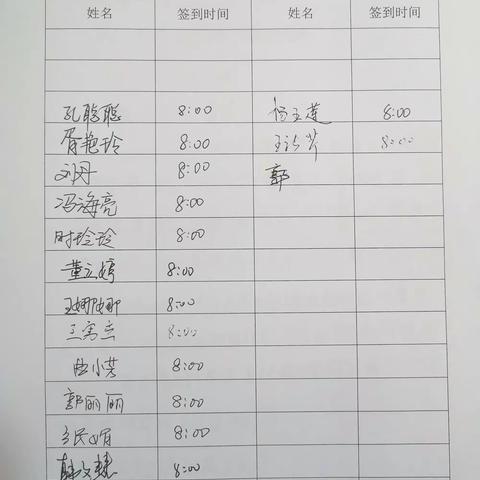 姓名 签到时间 姓名 签到时间
孔聪聪 8:00 杨玉莲 8:00
胥艳玲 8:00 8:00
刘丹 8:00 郭
冯海亮 8:00
时玲玲 8:00
董云嫦 8:00
王娜娜 8:00
8:00
小芳 8:00
郭丽丽 8:00
8:00
8:00